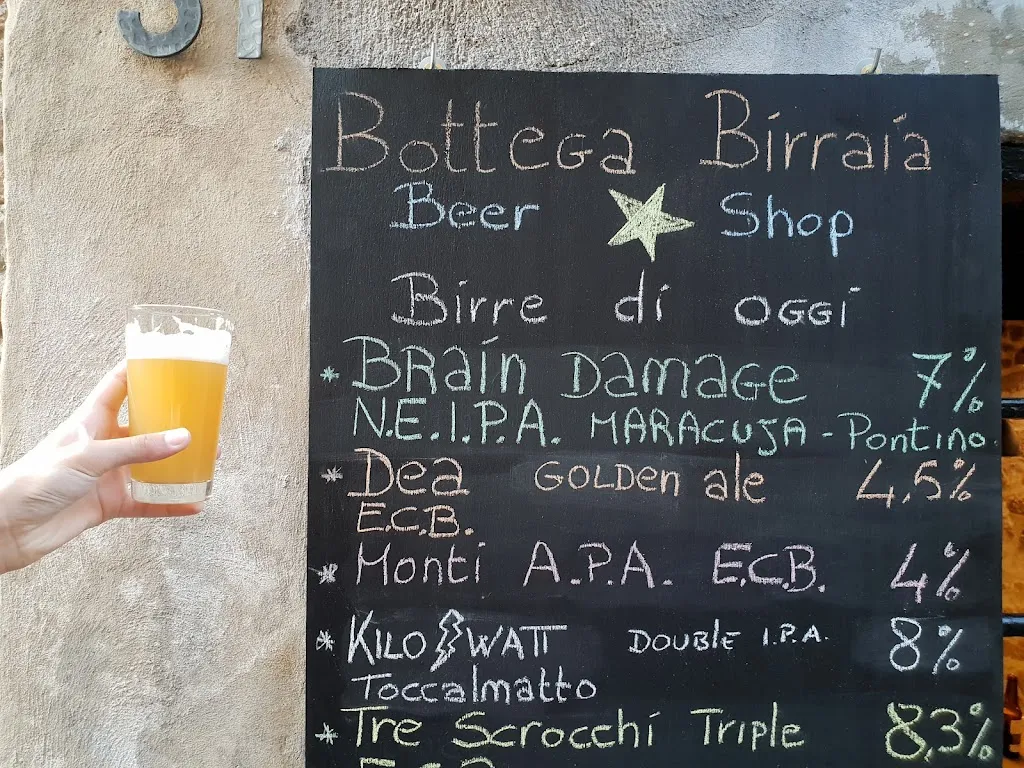 Bottega Birraia
Beer Shop
Birre di OGGi
* BRain Damage 7%
N.E.I.P.A. MARACUJA - Pontino
* Dea GOLDEN ale 4,5%
E.C.B.
* Monti A.P.A. E.C.B. 4%
* KILOWATT DOUBLE I.P.A. 8%
Toccalmatto
* Tre Scrocchi Triple 8,3%